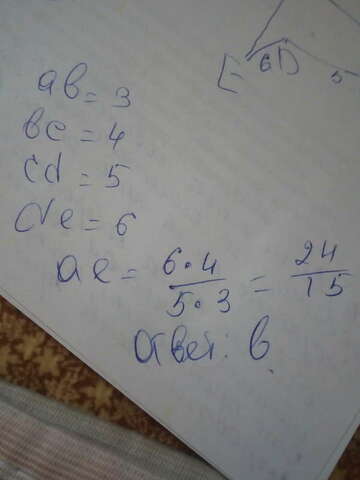 E 6 D 5
ab = 3
bc = 4
cd = 5
de = 6
ae = 6·4/5·3 = 24/15
Ответ: в